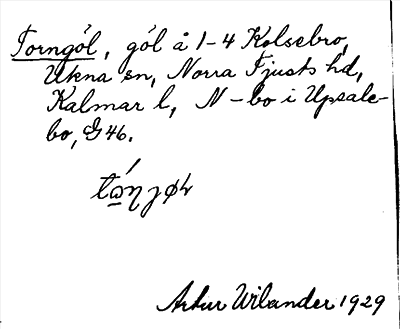 Torngöl, göl å 1-4 Kolsebro,
Ukna sn, Norra Tjusts hd,
Kalmar l, N-bo i Upsale-
bo, G46.
Artur Wilander 1929